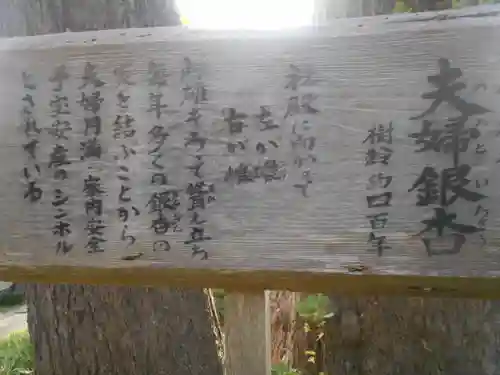 夫婦銀杏
樹齢約四百年
社殿に向かって
左が雄
右が雌
雌雄そろって實も立ち
毎年多くの銀杏の
実を結ぶことから
夫婦円満 家内安全
子宝安産のシンボル
とされている